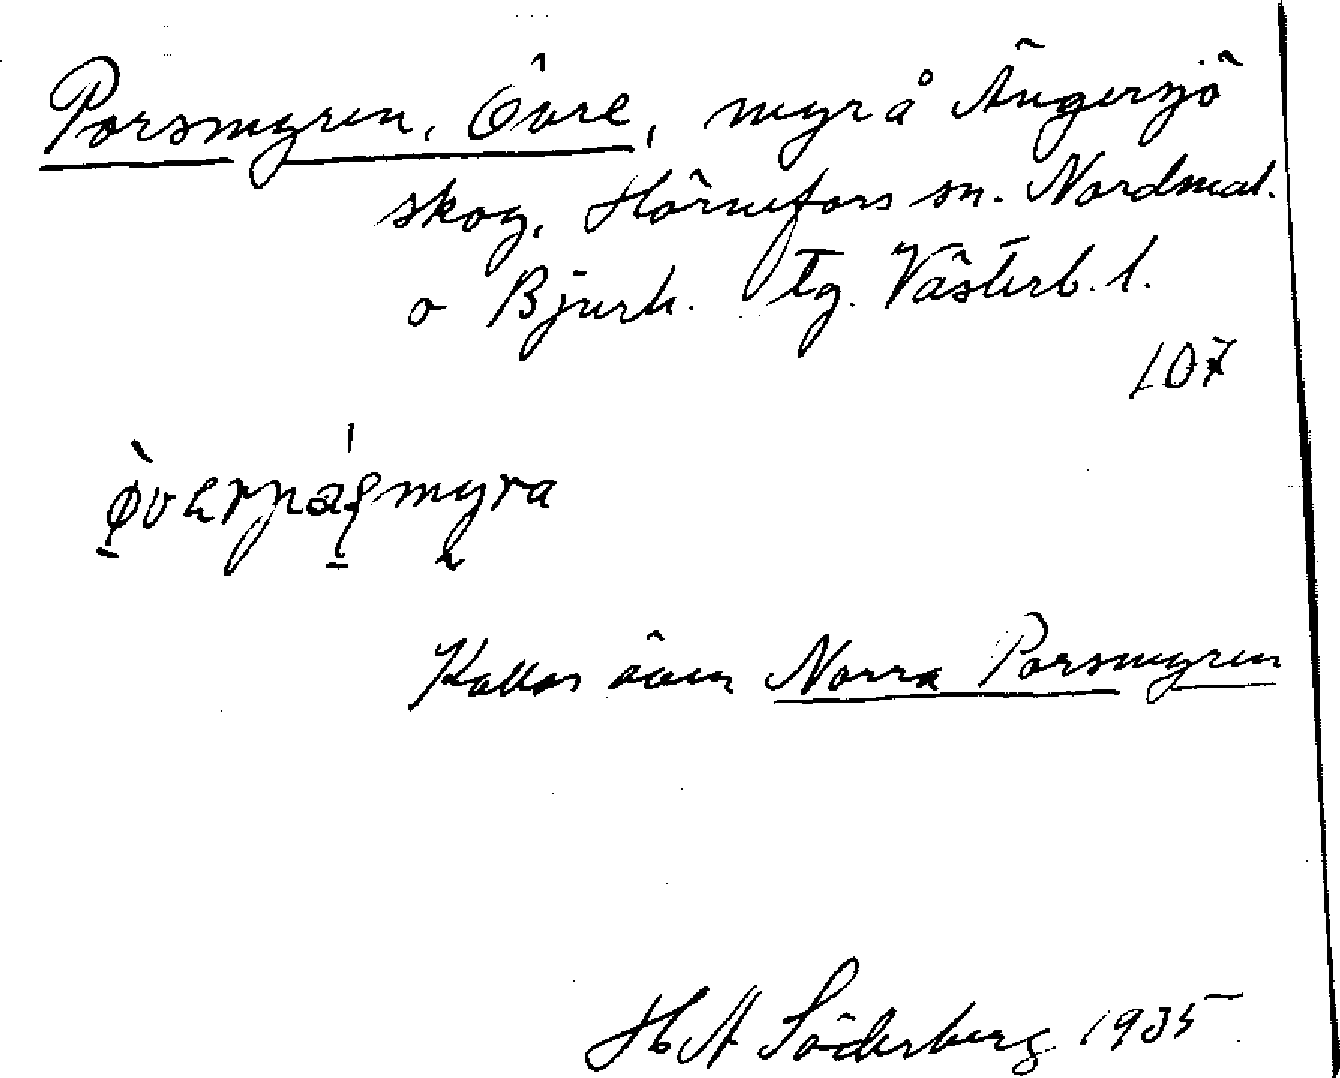 Porsmyren, Övre, myr å Ängersjö
skog, Hörnefors sn. Nordmal.
o Bjurh. tg. Västerb. l.
107
Kallas även Norra Porsmyren
H A Söderberg 1935